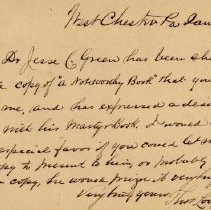 West Chester Pa Jan
Dr Jesse C. Green has been sh
a copy of "a Noteworthy Book" that you
me, and has expressed a des
with his Martyr Book. I would
especial favor if you could let m
copy to present to him, or notably
copy, he would prize it very
Very truly yours,
Thos